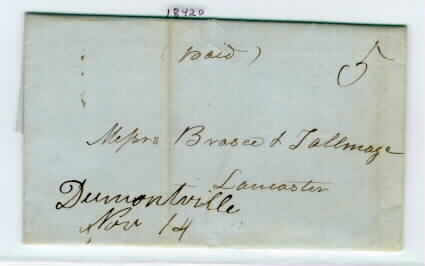 18420
(paid) 5
Messrs Brasee & Tallmage
Lancaster
Dumontville
Nov 14